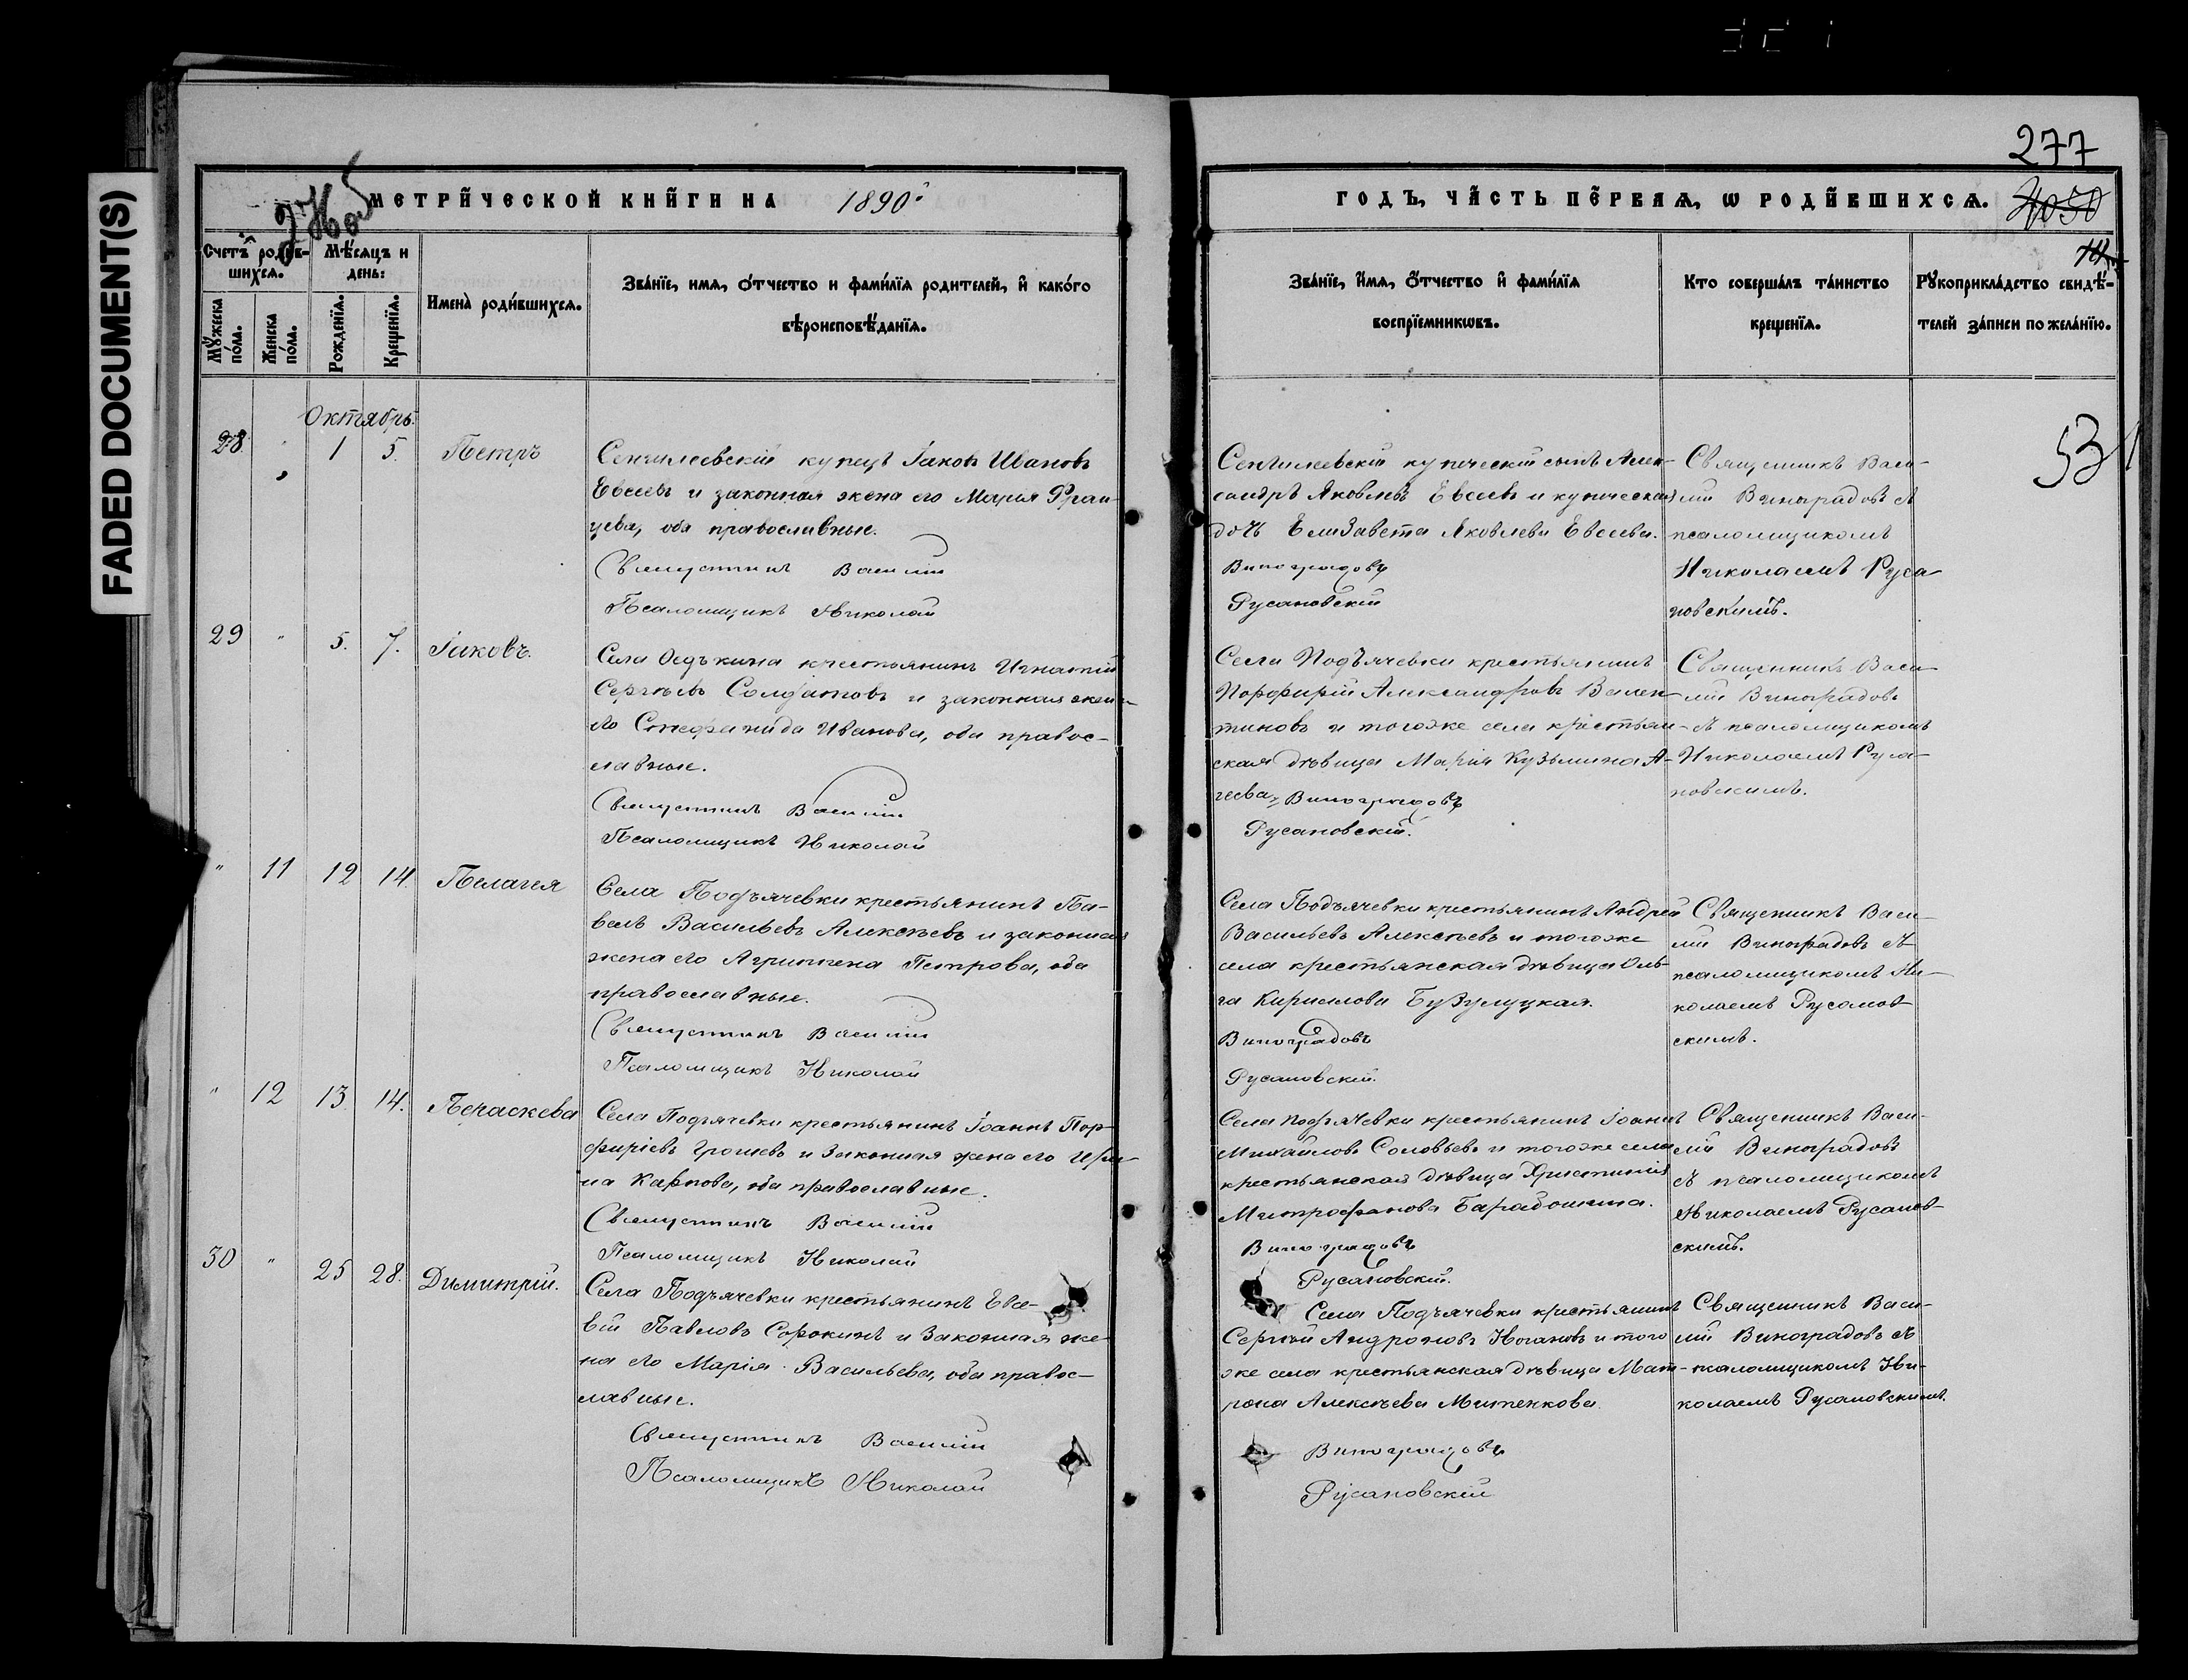 FADED DOCUMENT(S)
277
МЕТРИЧЕСКОЙ КНИГИ НА 1890й
ГОДЪ, ЧАСТЬ ПЕРВАЯ, Ѡ РОДИВШИХСЯ.
Счетъ родив-
шихся.
Мѣсяцъ и
день:
Мужеска
пола.
Женска
пола.
Рожденїя.
Крещенїя.
Имена родившихся.
Званїе, имя, отчество и фамилїя родителей, и какого
вѣроисповѣданїя.
Званїе, имя, отчество и фамилїя
воспрїемниковъ.
Кто совершалъ таинство
крещенїя.
Рукоприкладство свидѣ-
телей записи по желанїю.
Октябрь.
28 " 1 5. Петръ
Сенгилеевскій купецъ Іаковъ Ивановъ
Евсеевъ и законная жена его Марія Фран-
цева, оба православные.
Священникъ Василій
Псаломщикъ Николай
Сенгилеевскій купеческій сынъ Алек-
сандръ Яковлевъ Евсеевъ и купеческая
дочь Елизавета Яковлева Евсеева.
Виноградовъ
Русановскій
Священникъ Васи-
лій Виноградовъ съ
псаломщикомъ
Николаемъ Руса
новскимъ.
531
29 " 5. 7. Іаковъ.
Села крестьянинъ Игнатій
Сергѣевъ Солдатовъ и законная жена
его Стефанида Иванова, оба правос-
лавные.
Священникъ Василій
Псаломщикъ Николай
Села Подъячевки крестьянинъ
Порфирій Александровъ Вален-
тиновъ и тогоже села крестьян-
ская дѣвица Марія Кузьмина А-
геева. Виноградовъ
Русановскій.
Священникъ Васи-
лій Виноградовъ
съ псаломщикомъ
Николаемъ Руса-
новскимъ.
" 11 12 14. Пелагея
Села Подъячевки крестьянинъ Па-
велъ Васильевъ Алексѣевъ и законная
жена его Агриппена Петрова, оба
православные.
Священникъ Василій
Псаломщикъ Николай
Села Подъячевки крестьянинъ Андрей
Васильевъ Алексѣевъ и тогоже
села крестьянская дѣвица Оль-
га Кириллова Бузулуцкая.
Виноградовъ
Русановскій.
Священникъ Васи-
лій Виноградовъ съ
псаломщикомъ Ни-
колаемъ Русанов-
скимъ.
" 12 13 14. Параскева
Села Подъячевки крестьянинъ Іоаннъ Пор-
фиріевъ Грошевъ и законная жена его Ири-
на Карпова, оба православные.
Священникъ Василій
Псаломщикъ Николай
Села Подъячевки крестьянинъ Іоаннъ
Михайловъ Соловьевъ и тогоже села
крестьянская дѣвица Христинія
Митрофанова Барабошина.
Виноградовъ
Русановскій.
Священникъ Васи-
лій Виноградовъ
съ псаломщикомъ
Николаемъ Русанов-
скимъ.
30 " 25 28. Димитрій.
Села Подъячевки крестьянинъ Евсе-
вій Павловъ Сорокинъ и законная же-
на его Марія Васильева, оба правос-
лавные.
Священникъ Василій
Псаломщикъ Николай
Села Подъячевки крестьянинъ
Сергѣй Андроновъ и того
же села крестьянская дѣвица Мат-
рона Алексѣева Митенкова.
Виноградовъ
Русановскій
Священникъ Васи-
лій Виноградовъ съ
псаломщикомъ Ни-
колаемъ Русановскимъ.